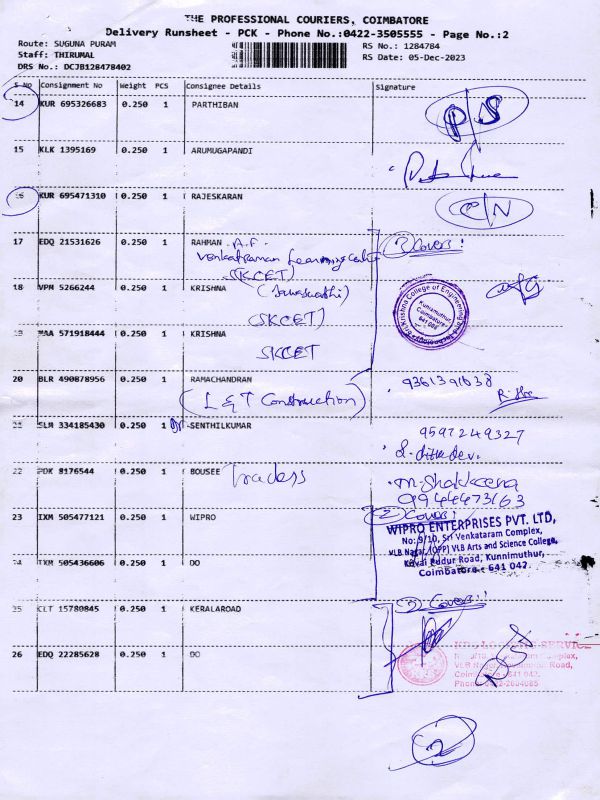 THE PROFESSIONAL COURIERS, COIMBATORE
Delivery Runsheet - PCK - Phone No.:0422-3505555 - Page No.:2
Route: SUGUNA PURAM
Staff: THIRUMAL
DRS No.: DCJB128478402
RS No.: 1284784
RS Date: 05-Dec-2023
S No Consignment No Weight PCS Consignee Details Signature
14 KUR 695326683 0.250 1 PARTHIBAN P/S
15 KLK 1395169 0.250 1 ARUMUGAPANDI
16 KUR 695471310 0.250 1 RAJESKARAN C/N
17 EDQ 21531626 0.250 1 RAHMAN - A.F.
Venkatraman Learning
(SKCET)
(3) Covers!
18 VPM 5266244 0.250 1 KRISHNA
(SKCET)
Sri Krishna College of Engineering and Technology
Kuniamuthur,
Coimbatore-
641 008
19 MAA 571918444 0.250 1 KRISHNA
SKCET
20 BLR 490878956 0.250 1 RAMACHANDRAN
(L & T Construction)
9361391638
21 SLM 334185430 0.250 1 SENTHILKUMAR
9597249327
22 PDK 8176544 0.250 1 BOUSEE Traders
9944473163
23 IXM 505477121 0.250 1 WIPRO
(2) Covers!
WIPRO ENTERPRISES PVT. LTD,
No: 9/10, Sri Venkataram Complex,
VLB Nagar, (OPP) VLB Arts and Science College,
Kovai Pudur Road, Kunnimuthur,
Coimbatore - 641 042.
24 IXM 505436606 0.250 1 DO
25 CLT 15780845 0.250 1 KERALAROAD
(2) Covers!
26 EDQ 22285628 0.250 1 DO
SERVICE
Complex,
Road,
641 042.
2